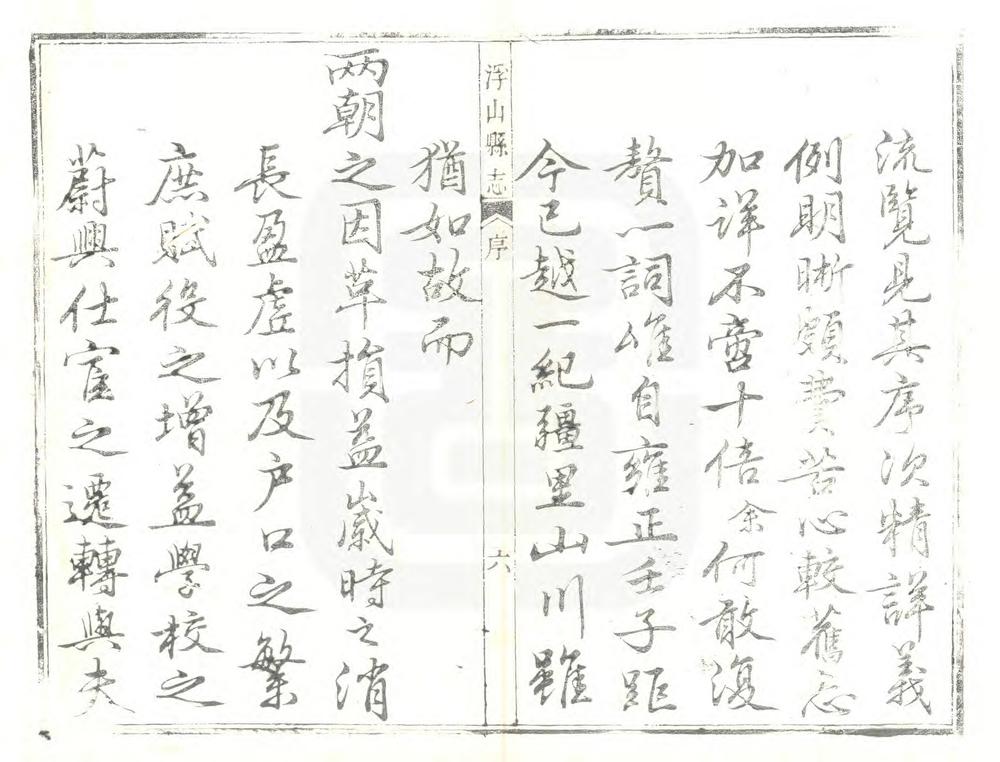 流覽見其序次精詳義
例明晰頗費苦心較舊志
加詳不啻十倍余何敢復
贅一詞惟自雍正壬子距
今已越一紀疆里山川雖
浮山縣志 序 六
猶如故而
兩朝之因革損益歲時之消
長盈虛以及户口之繁
庶賦役之增益學校之
蔚興仕宦之遷轉與夫